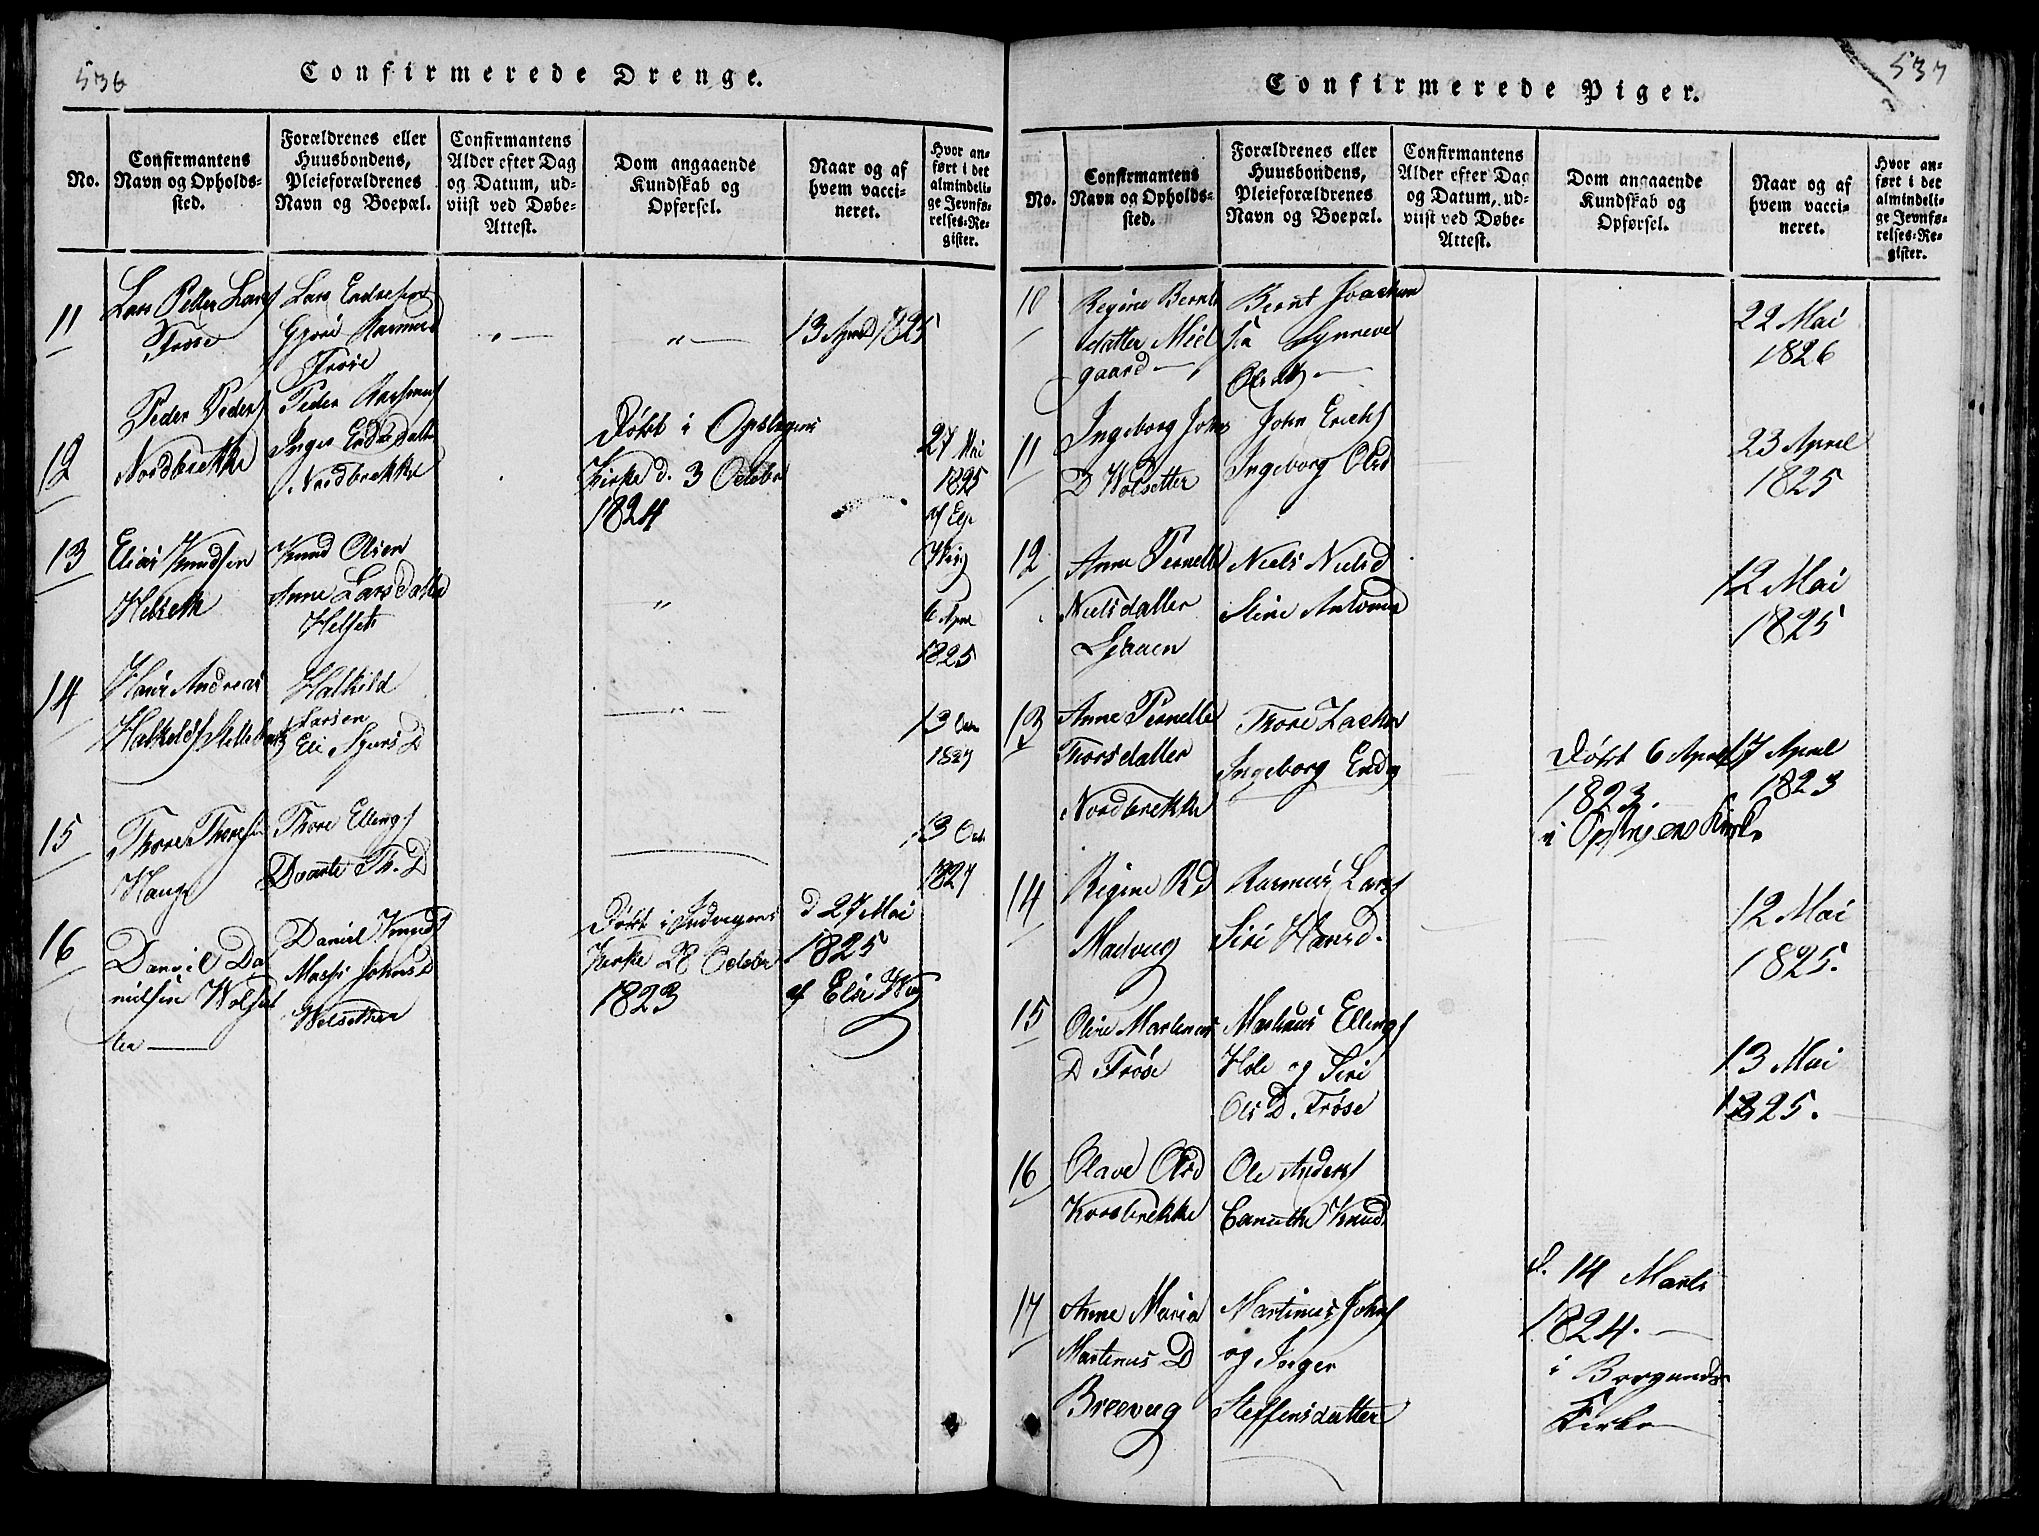 536
Confirmerede Drenge.
No.
Confirmantens
Navn og Opholds-
sted.
Forældrenes eller
Huusbondens,
Pleieforældrenes
Navn og Boepæl.
Confirmantens
Alder efter Dag
og Datum, ud-
viist ved Døbe-
Attest.
Dom angaaende
Kundskab og
Opførsel.
Naar og af
hvem vacci-
neret.
Hvor an-
ført i det
almindeli-
ge Jevnfø-
relses-Re-
gister.
11
Lars Petter Lars
Frøse
Lars Endresen
Rasmusd
Frøse
13 April 1825
12
Peder Peders
Nordbrekke
Peder Rasmus
Inger Endredatter
Nordbrekke
Døbt i Opstryns
Kirke d. 3 October
1824
27 Mai
1825
af Els
Wiig
13
Elias Knudsen
Helseth
Knud Olsen
Anne Larsdatter
Helseth
6 April
1825
14
Hans Andreas
Halkild
Larsen
Eli Sjursd
13 Oct
1827
15
Thore Thoresen
Hauge
Thore Ellings
Dorete Th. D
13 Oct
1827
16
Daniel Da
nielsen Wolset
ter
Daniel Knuds
Massi Johns D
Wolsetter
Døbt i Indvigens
Kirke 28 October
1823
d 27 Mai
1825
af Elie Wiig
537
Confirmerede Piger.
No.
Confirmantens
Navn og Opholds-
sted.
Forældrenes eller
Huusbondens,
Pleieforældrenes
Navn og Boepæl.
Confirmantens
Alder efter Dag
og Datum, ud-
viist ved Døbe-
Attest.
Dom angaaende
Kundskab og
Opførsel.
Naar og af
hvem vacci-
neret.
Hvor an-
ført i det
almindeli-
ge Jevnfø-
relses-Re-
gister.
10
Regine Bernt
datter Miel
gaard
Bernt Joachim
Synneve
Olsdtr
22 Mai
1826
11
Ingeborg Johns
D Wolsetter
John Erichs
Ingeborg Olsd
23 April
1825
12
Anne Pernelle
Nielsdatter
Niels Nielsd
Sire Antonis
12 Mai
1825
13
Anne Pernelle
Thorsdatter
Nordbrekke
Thore Zacha
Ingeborg End
Døbt 6 April
1823
i Opstryens Kirke
7 April
1823
14
Regine R d
Madvug
Rasmus Lars
Siri Hansd.
12 Mai
1825.
15
Oline Martinus
D Frøse
Martinus Ellings
Hole og Siri
Ols D. Frøse
13 Mai
1825.
16
Olave Olsd
Korsbrekke
Ole Anders
Canutte Knud
17
Anne Maria
Martinus D
Breevug
Martinus Johns
og Inger
Steffensdatter
d. 14 Marts
1824.
i Borgunds
Kirke